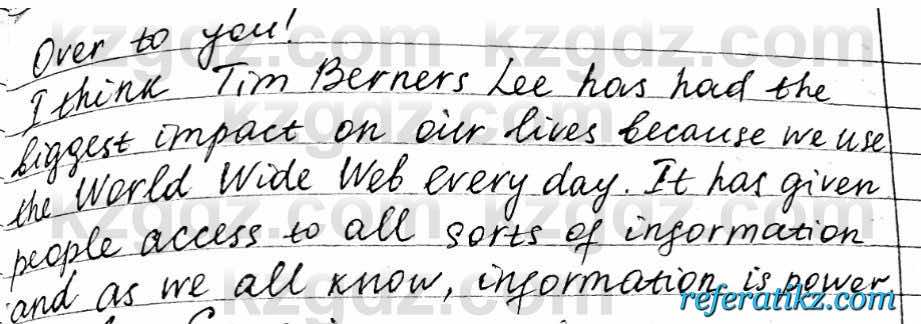 Over to you!
I think Tim Berners Lee has had the
biggest impact on our lives because we use
the World Wide Web every day. It has given
people access to all sorts of information
and as we all know, information is power
kzgdz.com kzgdz.com kzgdz.com
referatikz.com